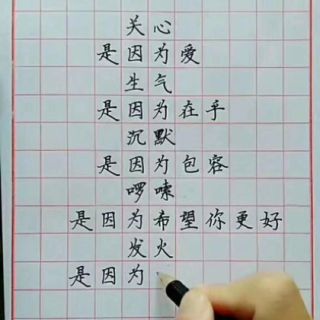 关心
是因为爱
生气
是因为在乎
沉默
是因为包容
啰唻
是因为希望你更好
发火
是因为